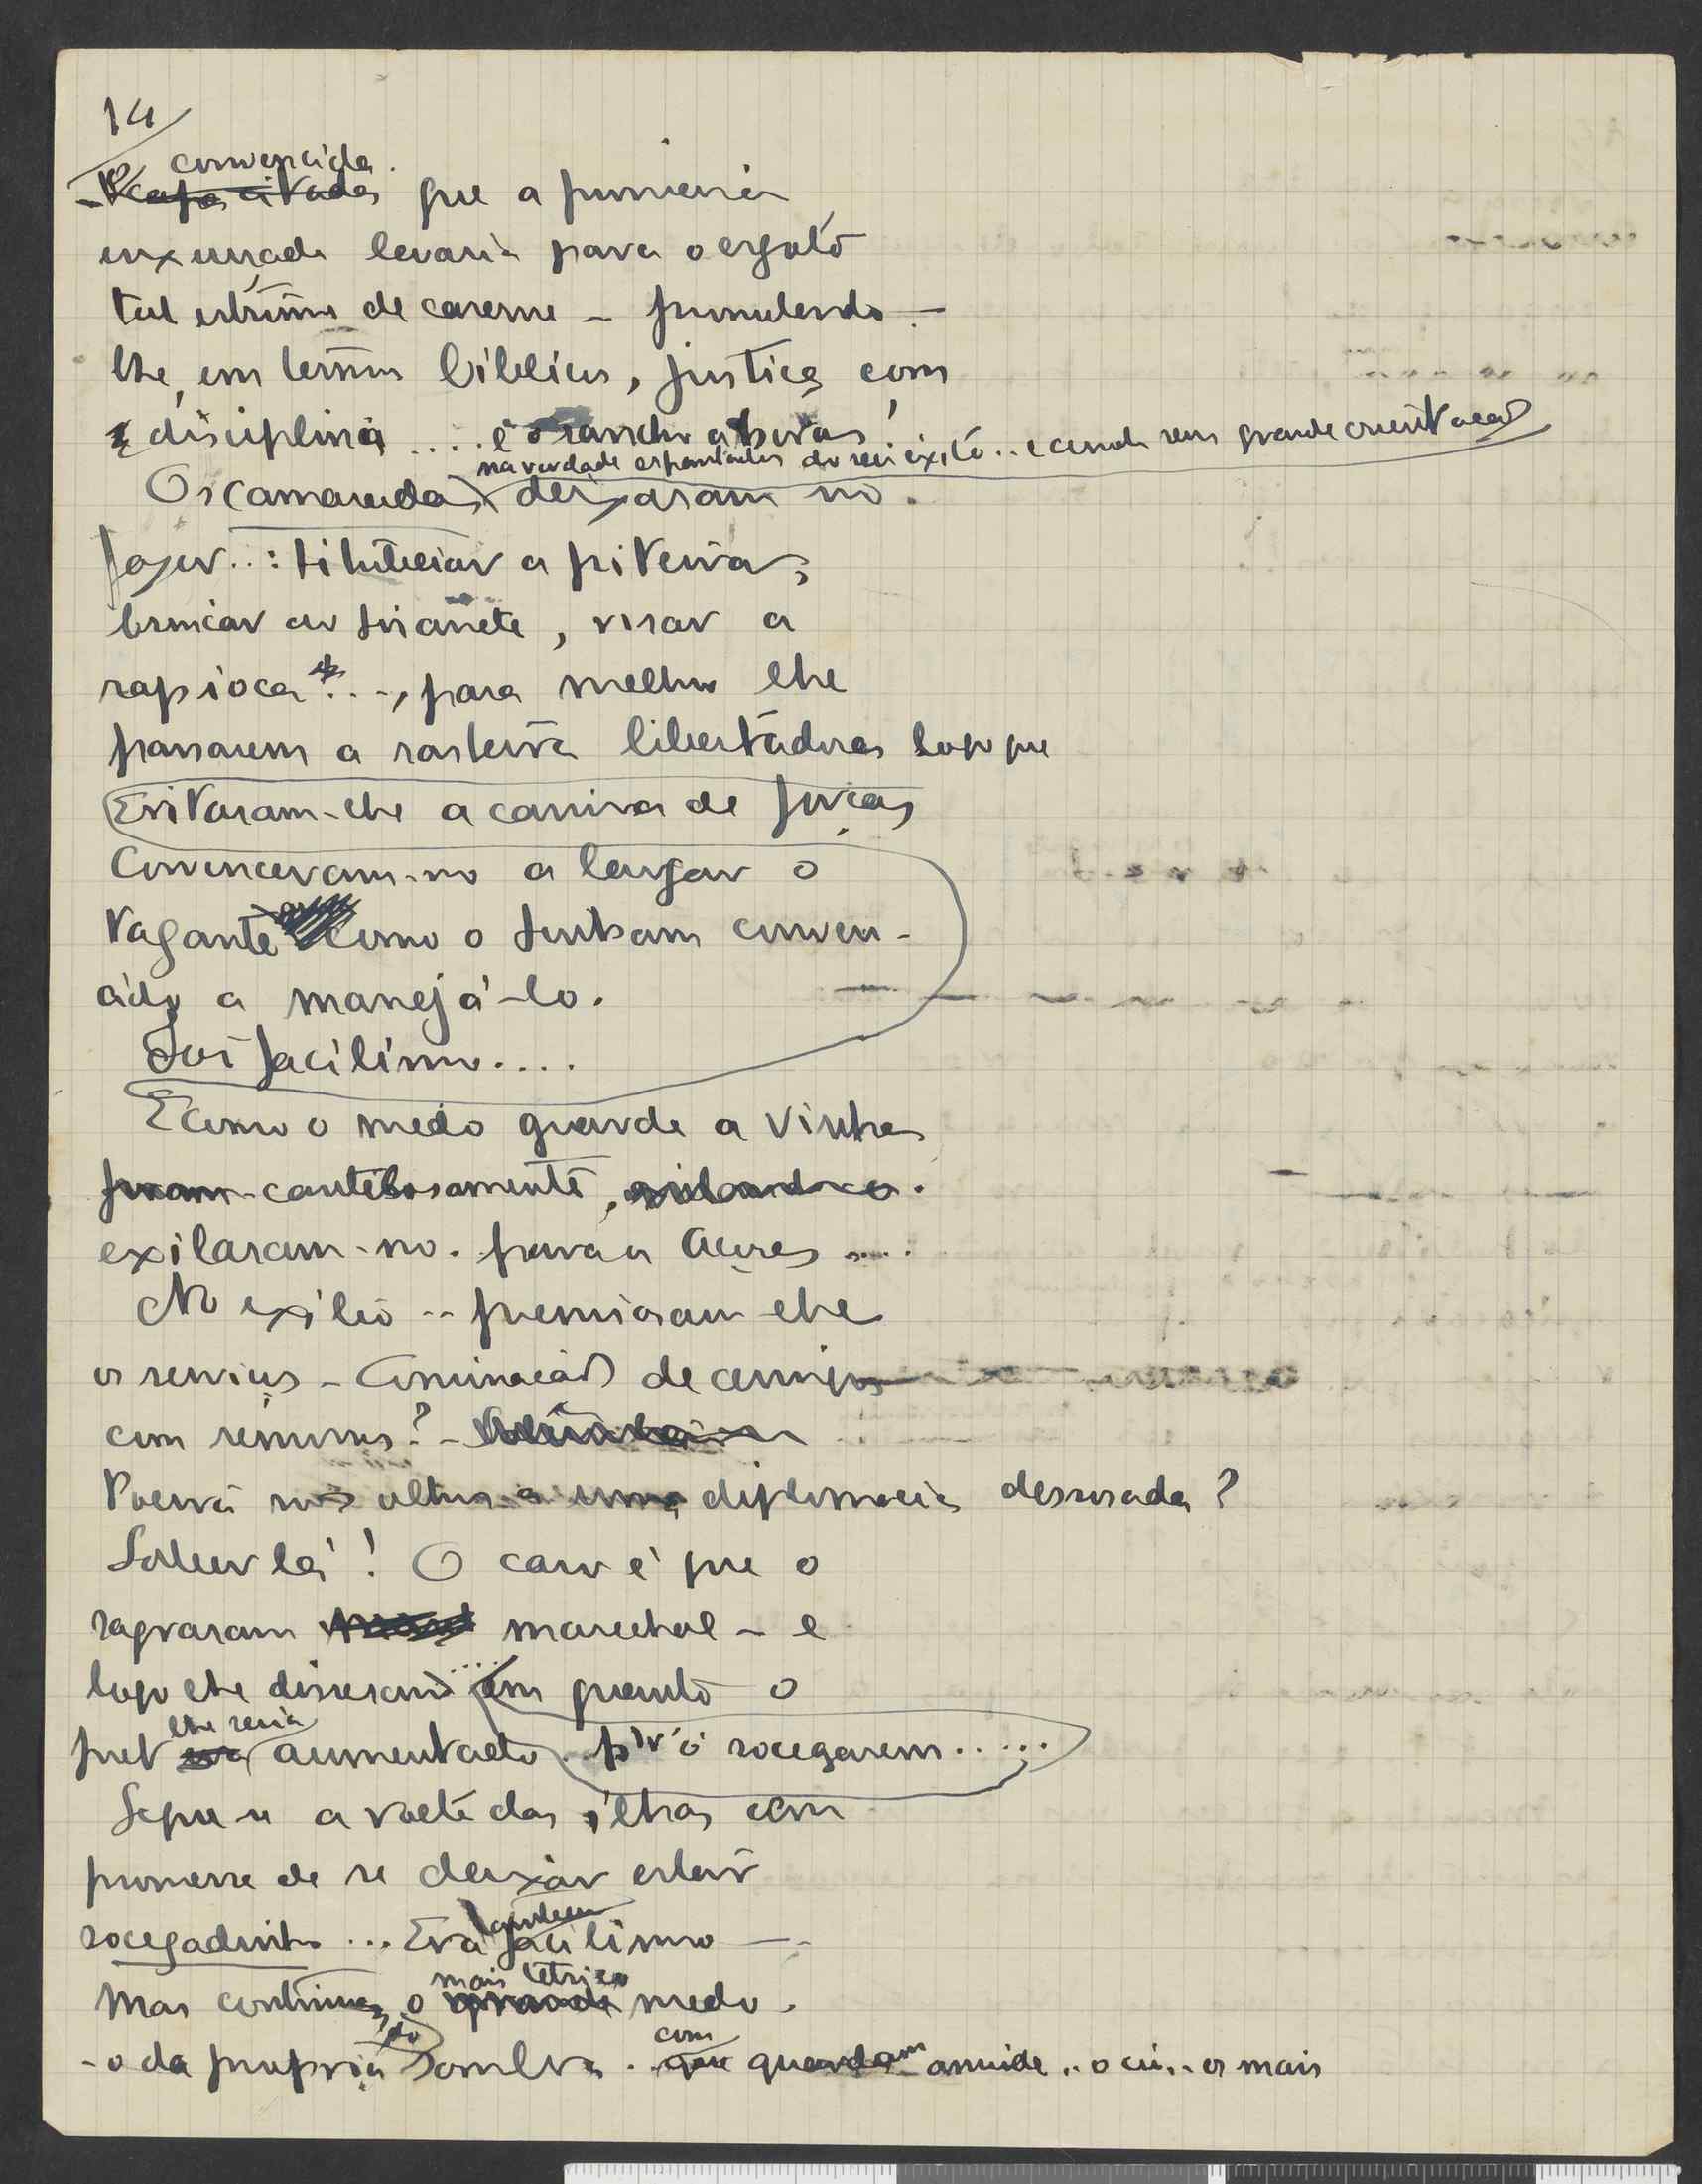 14
convencida
que a primeira
enxurrada levaria para o esgoto
tal estrume de caserna - prometendo-
lhe, em termos biblicos, justiça com
disciplina .... e o rancho a horas!
na verdade espantados do seu exito.. e ainda sem grande orientação
Os camaradas deixaram-no
fazer..: titubear a piteira,
brincar ao sinanete, visar a
rapioca..., para melhor lhe
passarem a rasteira libertadora logo que
Evitaram-lhe a camisa de forças
Convenceram-no a largar o
vagante como o tinham conven-
cido a manejá-lo.
Foi facilimo....
E como o medo guarda a vinha
foram cautelosamente,
exilaram-no para os Açores ....
No exilio .. premiaram-lhe
os serviços - Cominação de amigos
com remorsos? -
Poeira nos olhos a uma diplomacia desusada?
Sabe-se lá! O caso é que o
sagraram marechal - e
logo lhe disseram .... em quanto o
pret lhe seria aumentado p'r'ó socegarem.....
Segue-se a volta das ilhas com
promessa de se deixar estar
socegadinho ... Era tambem facilimo -
Mas continua o mais tétrico medo.
- o da propria sombra. com que guardam amiude .. o cu.. os mais